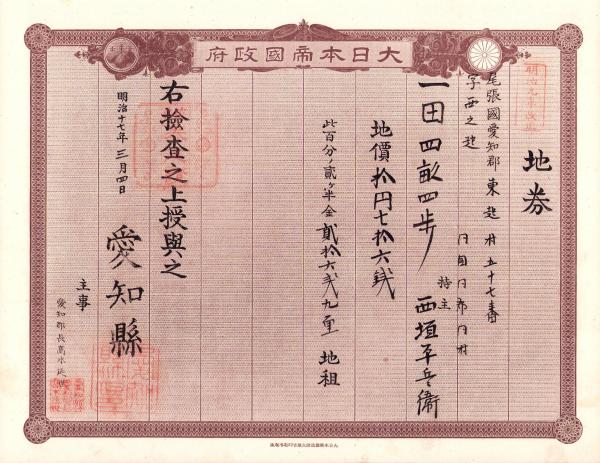 大日本帝國政府
地券
尾張國愛知郡東起村五十七番
字西之起
一田四畝四歩
持主 西垣平兵衛
地價拾円七拾六銭
此百分ノ貳ヶ半金貳拾六銭九厘 地租
右撿査之上授與之
明治十七年三月四日
愛知縣
主事
愛知郡長